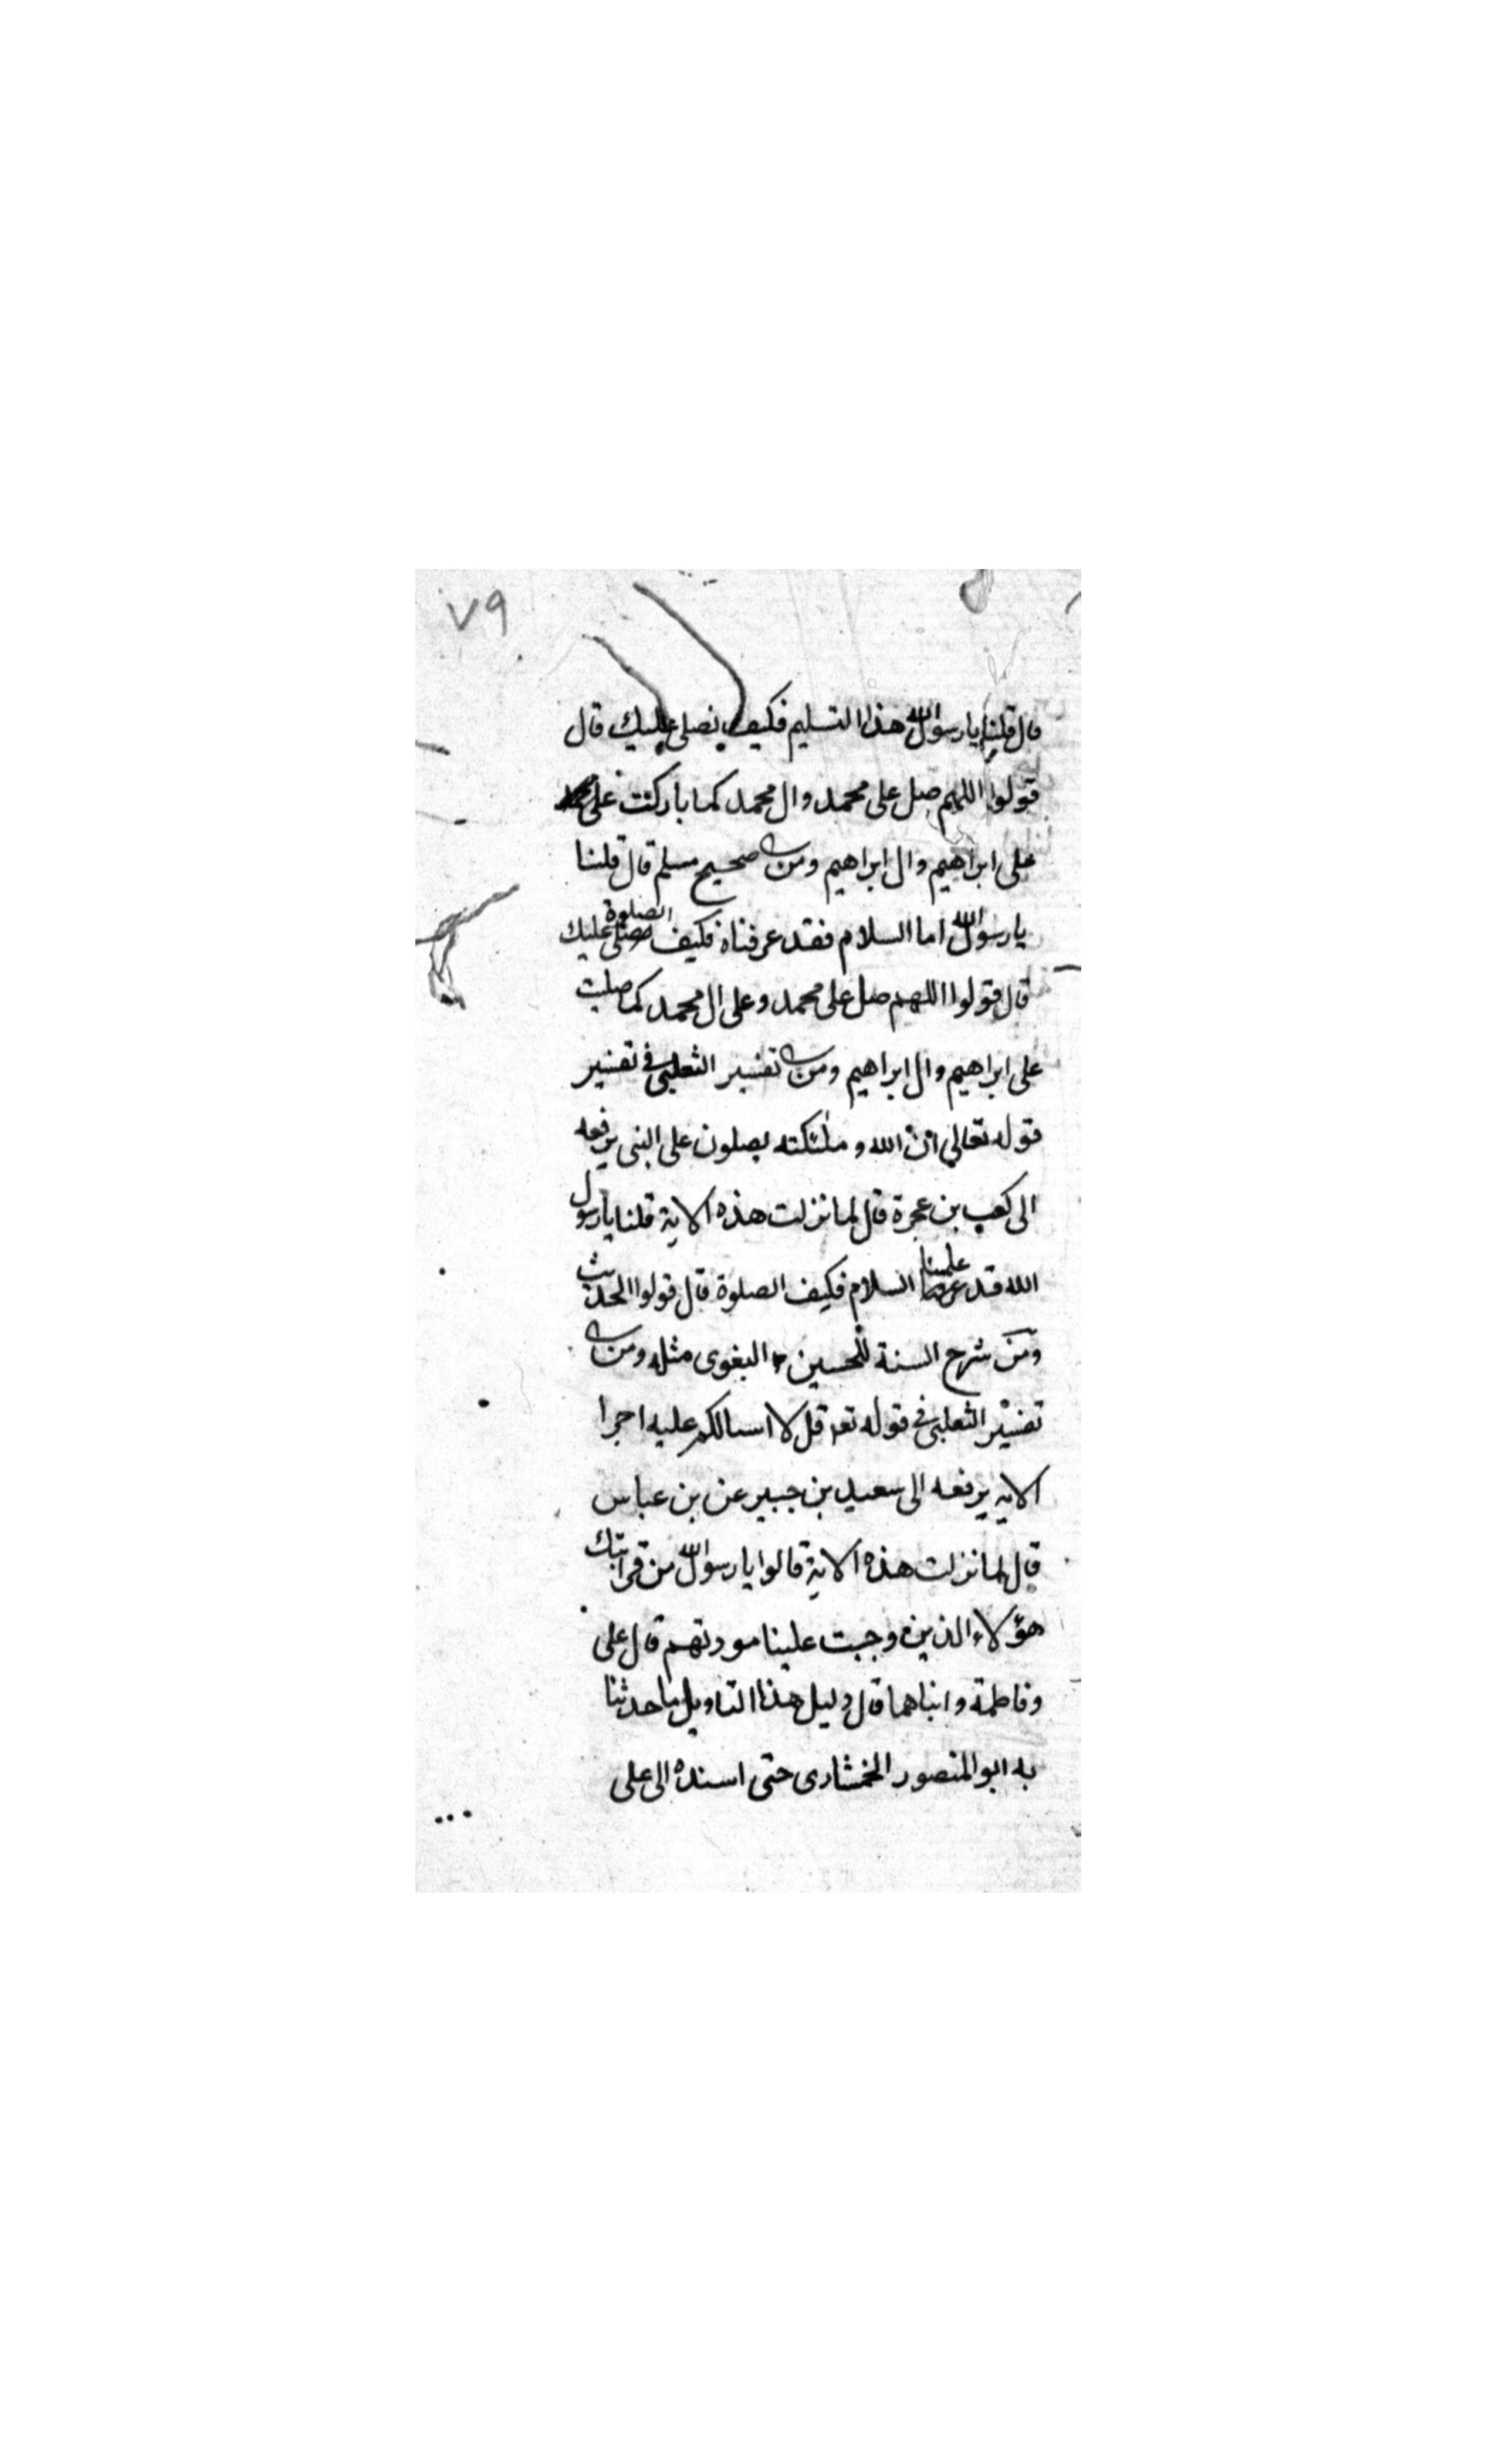 ٧٩
قال قلنا يا رسول الله هذا التسليم فكيف نصلى عليك قال
قولوا اللهم صل على محمد وال محمد كما باركت على
على ابراهيم وال ابراهيم ومن صحيح مسلم قال قلنا
يا رسول الله اما السلام فقد عرفناه فكيف الصلوة عليك
قال قولوا اللهم صل على محمد وعلى ال محمد كما صليت
على ابراهيم وال ابراهيم ومن تفسير الثعلبى فى تفسير
قوله تعالى ان الله وملئكته يصلون على النبى يرفعه
الى كعب بن عجرة قال لما نزلت هذه الاية قلنا يا رسول
الله قد علمنا السلام فكيف الصلوة قال قولوا الحديث
ومن شرح السنة للحسين البغوى مثله ومن
تفسير الثعلبى فى قوله تعا قل لا اسالكم عليه اجرا
الايه يرفعه الى سعيد بن جبير عن بن عباس
قال لما نزلت هذه الاية قالوا يا رسول الله من قرابتك
هؤلاء الذين وجبت علينا مودتهم قال على
وفاطمة وابناهما قال دليل هذا التاويل ما حدثنا
به ابو المنصور الخمشادى حتى اسنده الى على